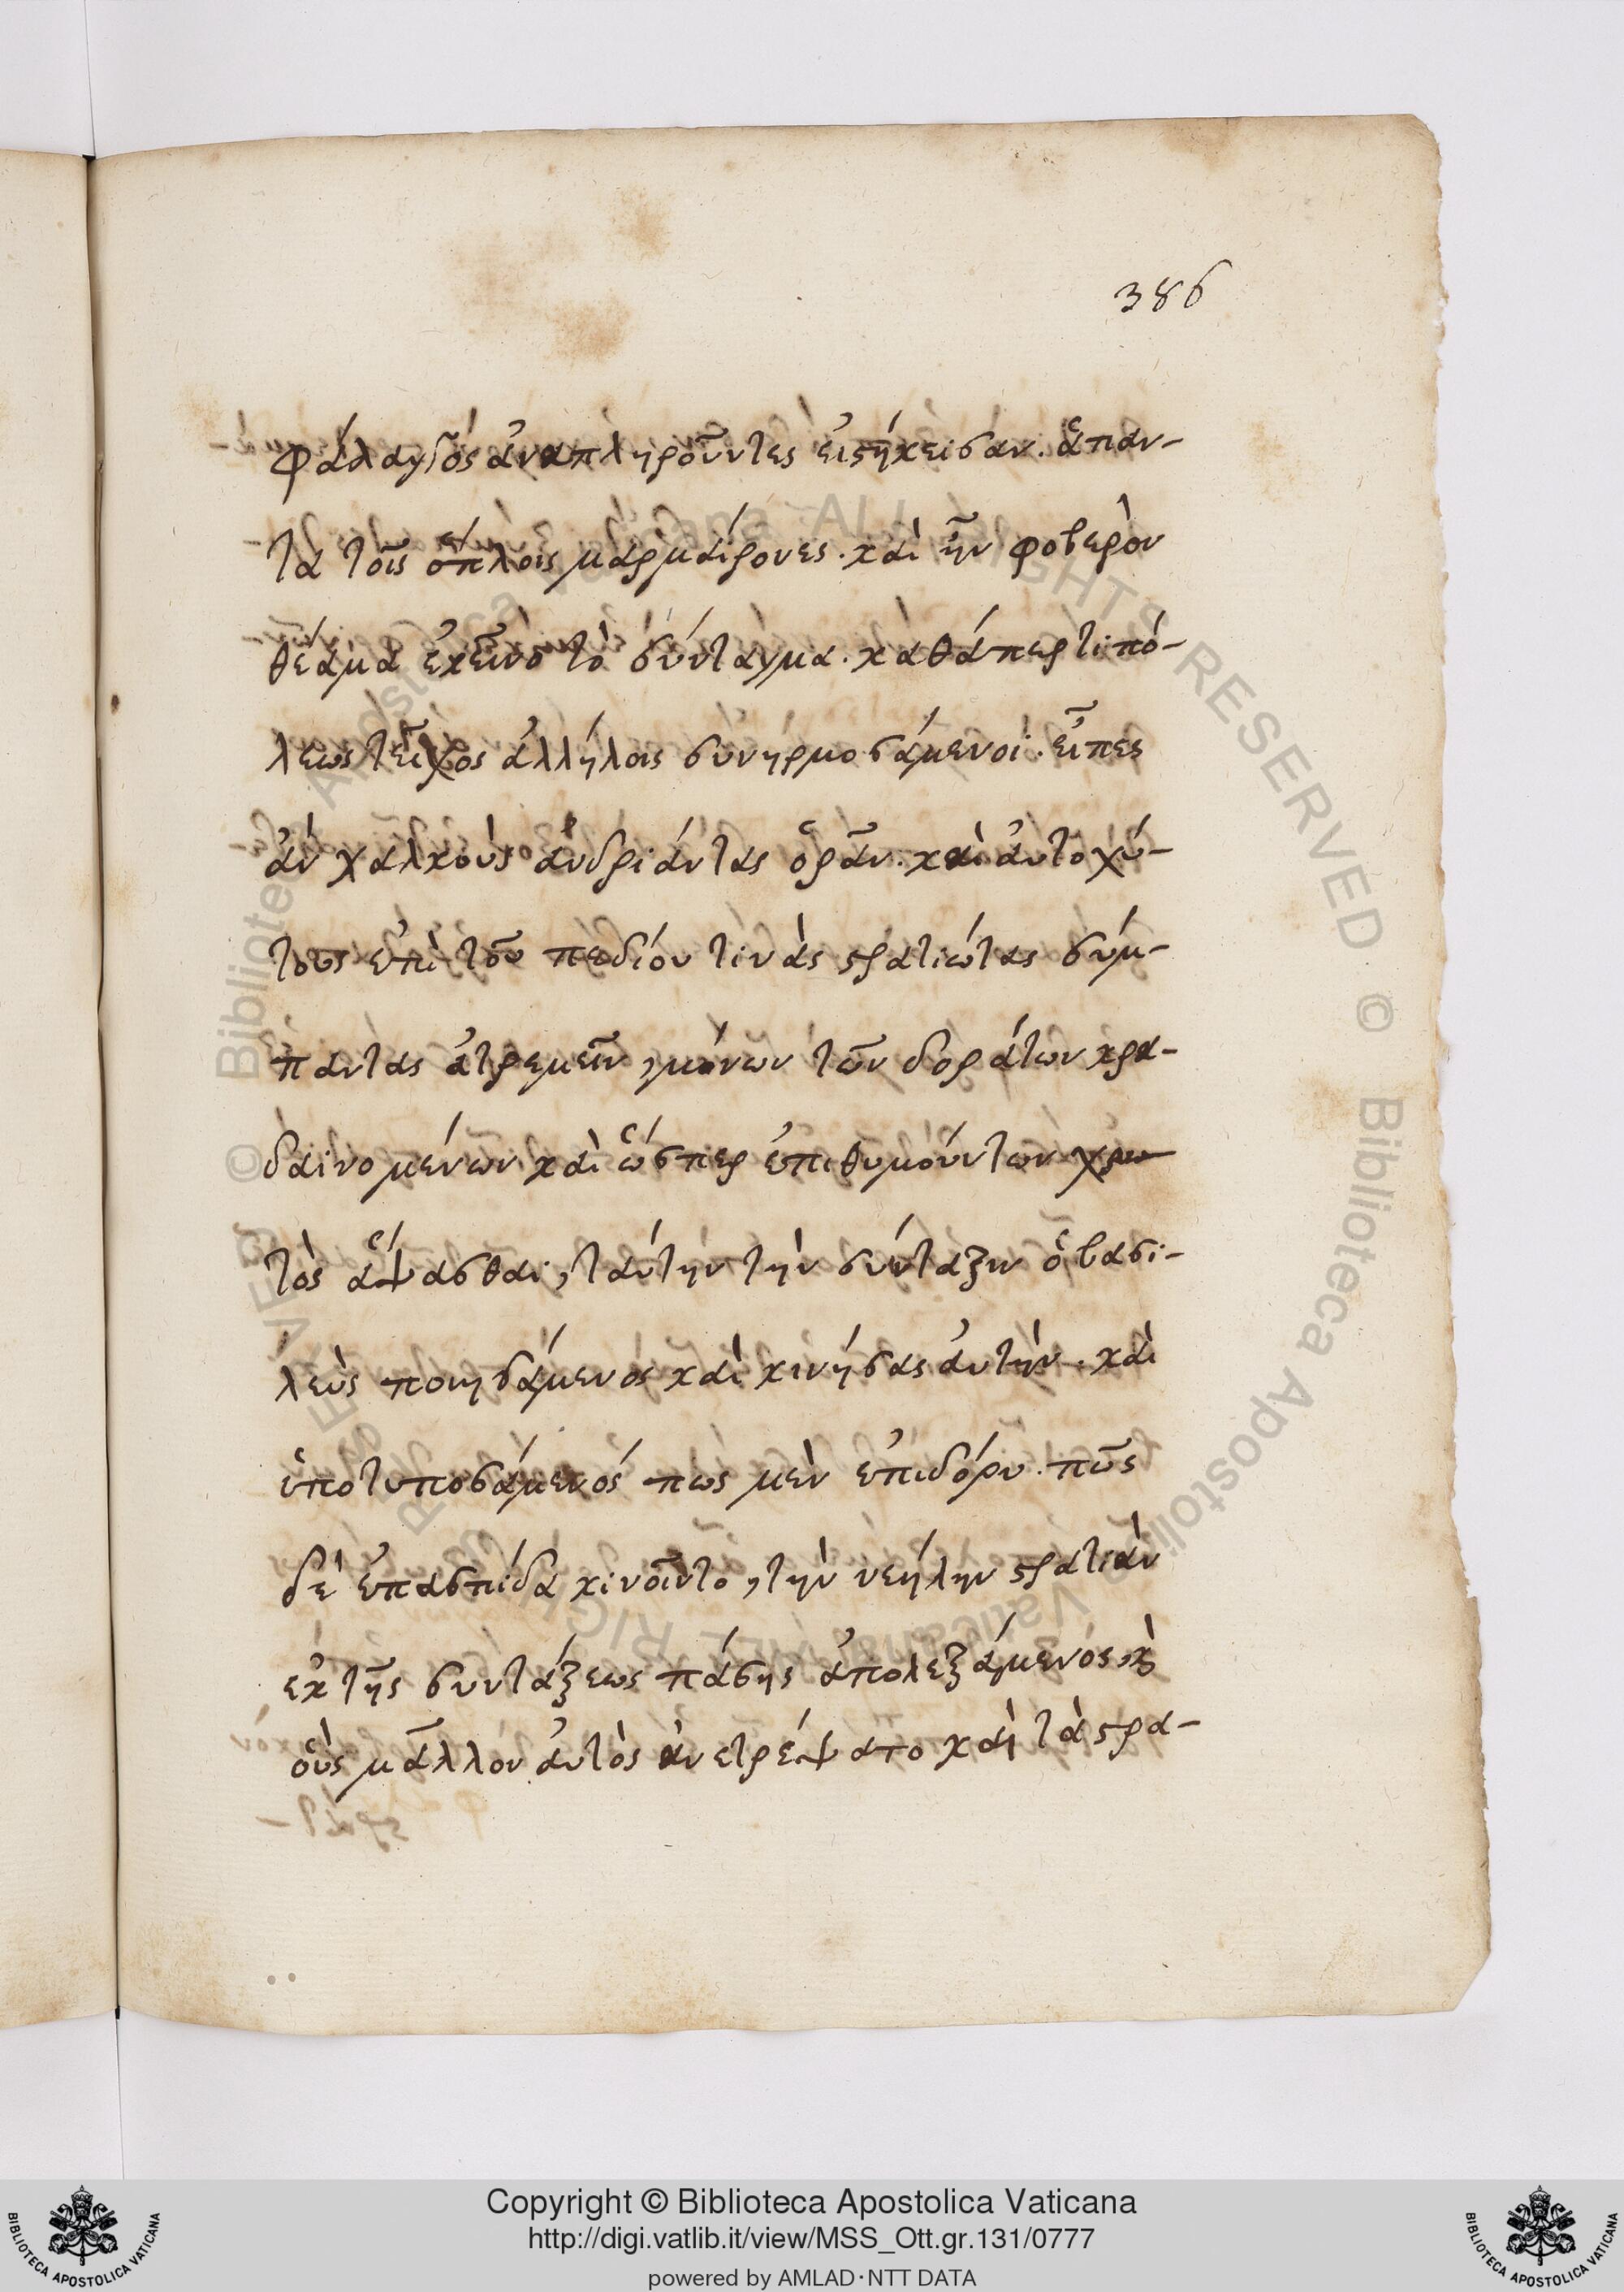 386
φάλαγγος ἀναπληροῦντες εἰστήκεισαν. ἅπαν-
τα τοῖς ὅπλοις μαρμαίρονες. καὶ ἦν φοβερὸν
θέαμα ἐκεῖνο τὸ σύνταγμα. καθάπερ τι πό-
λεως τεῖχος ἀλλήλοις συνηρμοσάμενοι. εἶπες
ἀν χαλκοὺς ἀνδριάντας ὁρᾶν. καὶ αὐτοχύ-
τους ἐπὶ τοῦ πεδίου τινὰς στρατιώτας σύμ-
παντας ἀτρεμεῖν, μόνων τῶν δοράτων κρα-
δαινομένων καὶ ὥσπερ ἐπιθυμούντων χρω
τὸς ἅψασθαι, ταύτην τὴν σύνταξιν ὁ βασι-
λεὺς ποιησάμενος καὶ κινήσας αὐτὴν. καὶ
ὑποτυποσάμενός πως μὲν ἐπιδόρυ. πῶς
δὲ ἐπασπίδα κινοῖντο, τὴν νεήλην στρατιὰν
ἐκ τῆς συντάξεως πάσης ἀπολεξάμενος, καὶ
οὓς μᾶλλον αὐτὸς ἀνετρέψατο καὶ τὰ στρα-
Copyright © Biblioteca Apostolica Vaticana
http://digi.vatlib.it/view/MSS_Ott.gr.131/0777
powered by AMLAD·NTT DATA
BIBLIOTECA APOSTOLICA VATICANA
BIBLIOTECA APOSTOLICA VATICANA